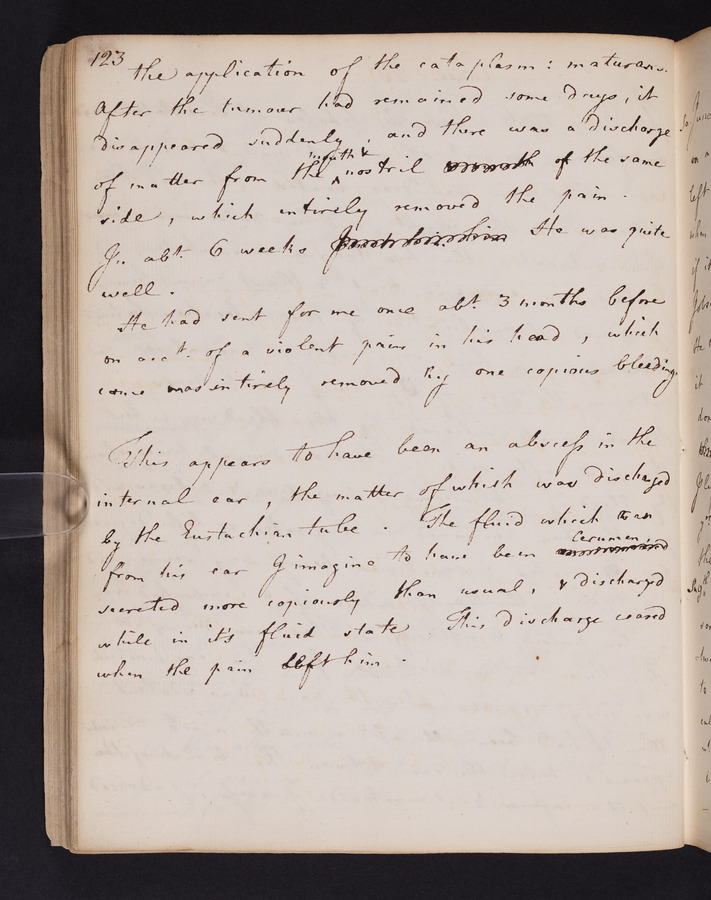 123
the application of the cataplasm: maturans.
After the tumour had remained some days, it
disappeared suddenly, and there was a discharge
mouth &
of matter from the ^ nostril of the same
side, which entirely removed the pain.
In abt. 6 weeks He was quite
well.
He had sent for me once abt. 3 months before
on acct. of a violent pain in his head, which
came was entirely removed by one copious bleeding.
This appears to have been an abscess in the
internal ear, the matter of which was discharged
by the Eustachian tube. The fluid which ran
cerumen,
from his ear I imagine to have been
secreted more copiously than usual, & discharged
while in it's fluid state. This discharge ceased
when the pain left him.